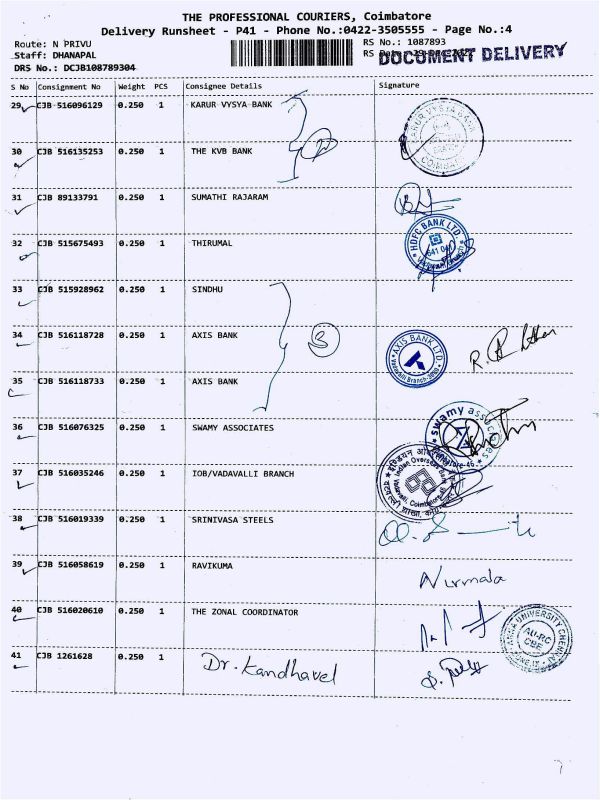 THE PROFESSIONAL COURIERS, Coimbatore
Delivery Runsheet - P41 - Phone No.:0422-3505555 - Page No.:4
Route: N PRIVU
RS No.: 1087893
Staff: DHANAPAL
RS
DOCUMENT DELIVERY
DRS No.: DCJB108789304
S No Consignment No Weight PCS Consignee Details Signature
29 CJB 516096129 0.250 1 KARUR VYSYA BANK
30 CJB 516135253 0.250 1 THE KVB BANK
31 CJB 89133791 0.250 1 SUMATHI RAJARAM
32 CJB 515675493 0.250 1 THIRUMAL
HDFC BANK LTD.
33 CJB 515928962 0.250 1 SINDHU
34 CJB 516118728 0.250 1 AXIS BANK
3
AXIS BANK LTD.
35 CJB 516118733 0.250 1 AXIS BANK
36 CJB 516076325 0.250 1 SWAMY ASSOCIATES
swamy associates
37 CJB 516035246 0.250 1 IOB/VADAVALLI BRANCH
Indian Overseas Bank
38 CJB 516019339 0.250 1 SRINIVASA STEELS
39 CJB 516058619 0.250 1 RAVIKUMA
Nirmala
40 CJB 516020610 0.250 1 THE ZONAL COORDINATOR
UNIVERSITY
AU-RC
CBE
41 CJB 1261628 0.250 1 Dr. Kandhavel